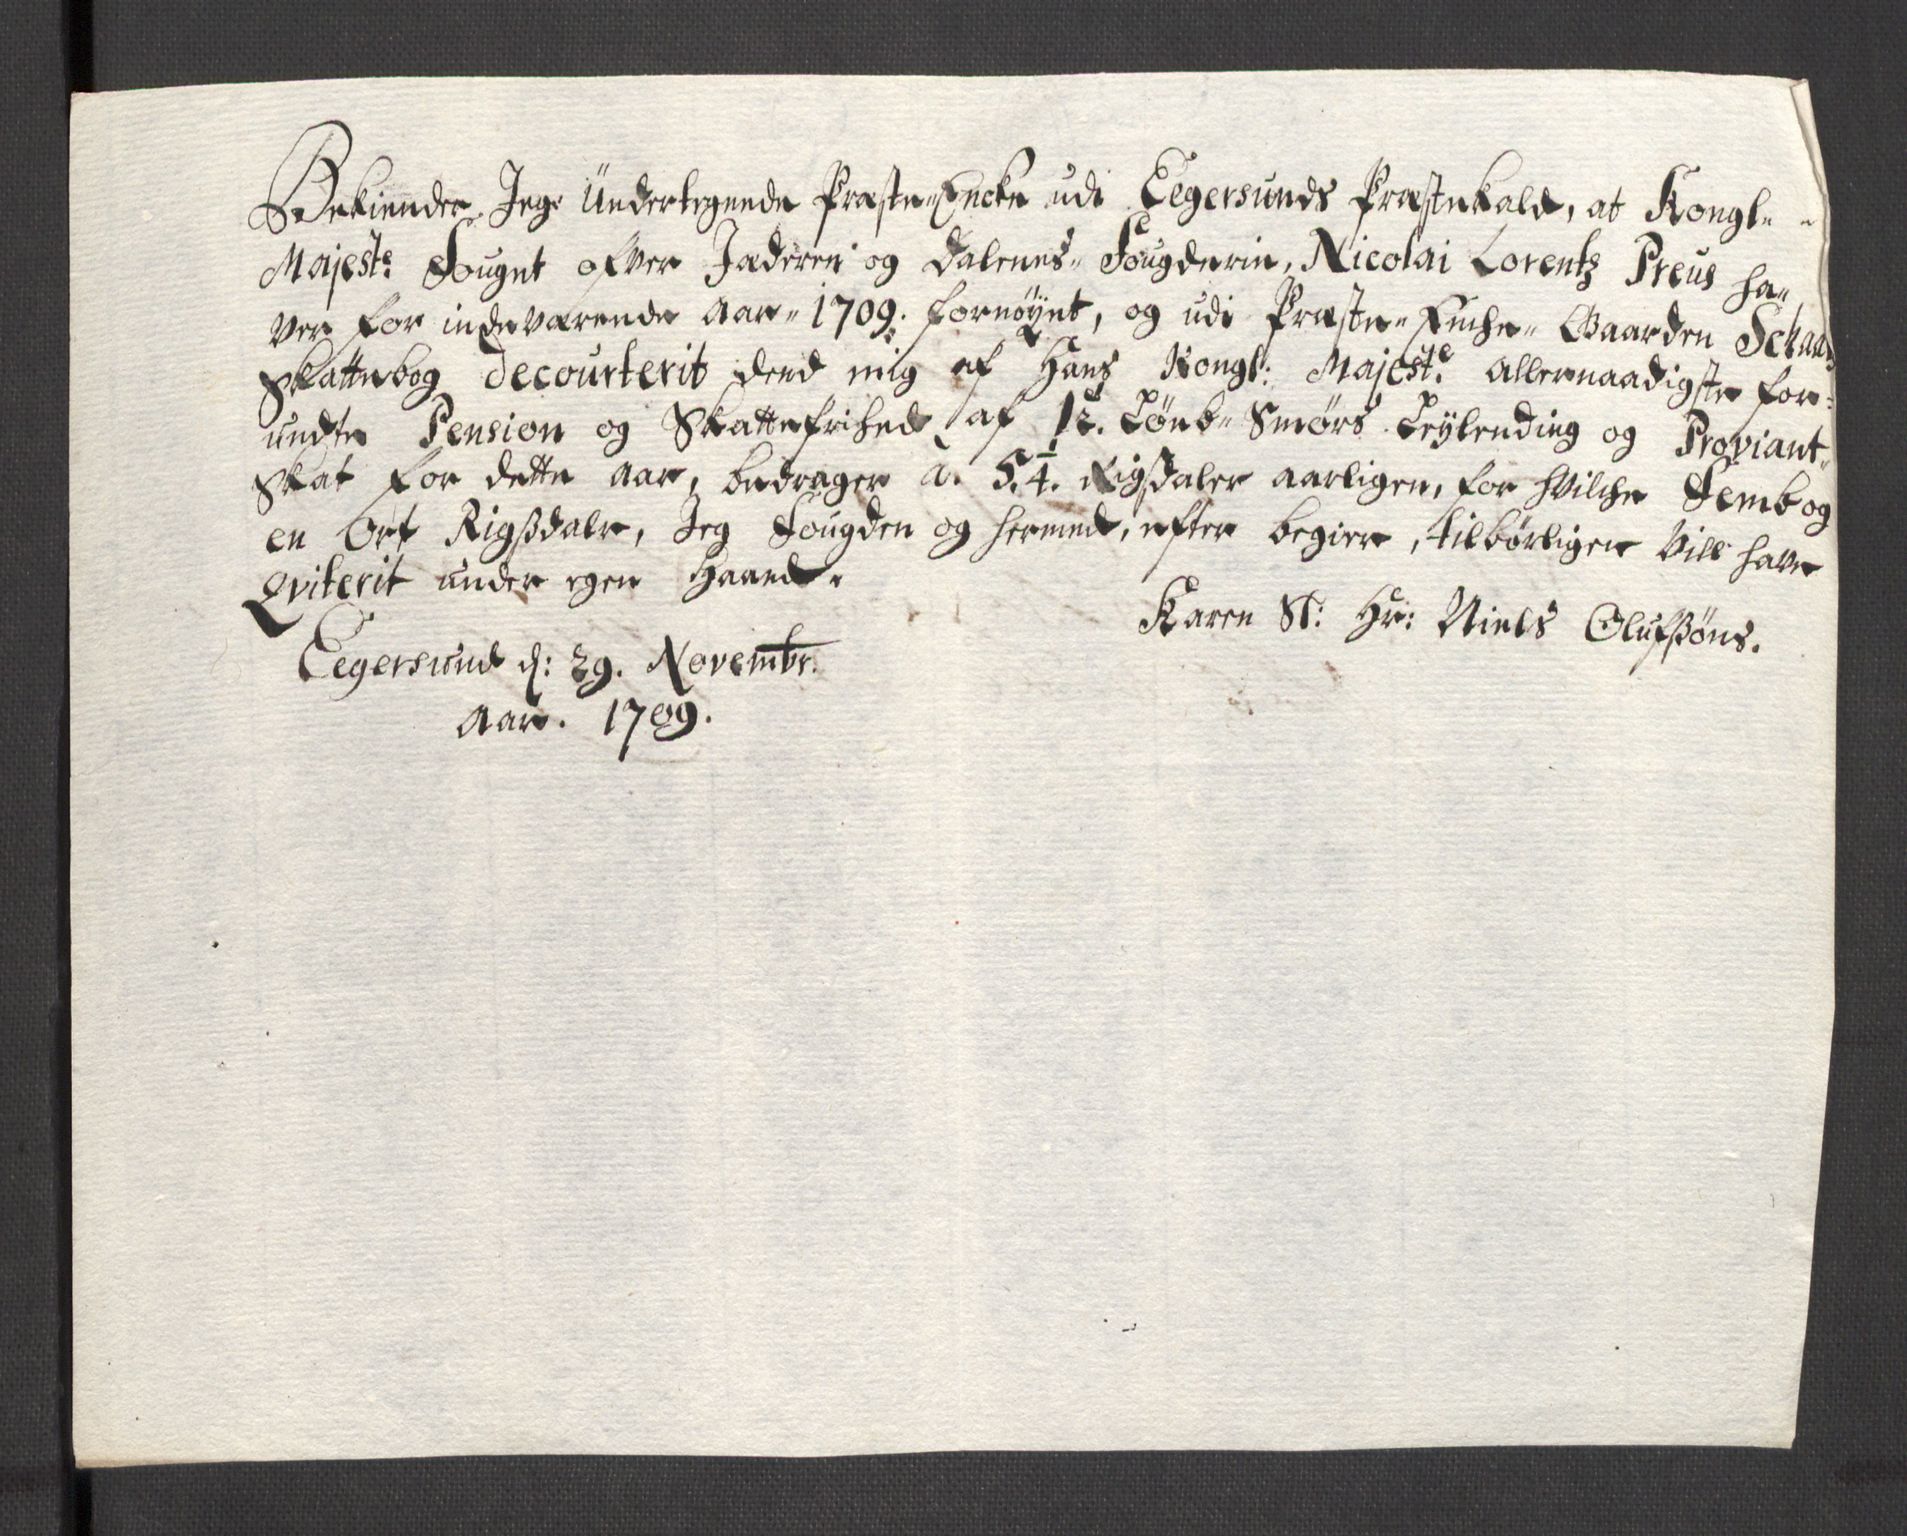 Bekiender Jeg Undertegnede Præste-Encke udi Eegersunds Præstekald, at Kongl-
Majest: Fouget ofver Jæderen og Dalenes-Fougderie, Nicolai Lorentz Preus ha-
ver for indeværende aar-1709. fornøyet, og udi Præste-Enche-Gaarden Schaa
Skattebog Decourterit dend mig af Hans Kongl: Majest: allernaadigste for-
undte Pension og Skattefrihed af 12. Lønb-Smørs Leylending og Proviant-
Skat for dette aar, bedrager a. 5.¼. Rigsdaler aarligen, for hvilche Femb og
en Ort Rigßdalr, Jeg Fougden og hermed, efter begiere, tilbørligen Vill have
Qviterit under egen Haand.
Karen Sl: Hr: Niels Olufßøns.
Eegersund d: 29. Novembr.
Aar. 1709.